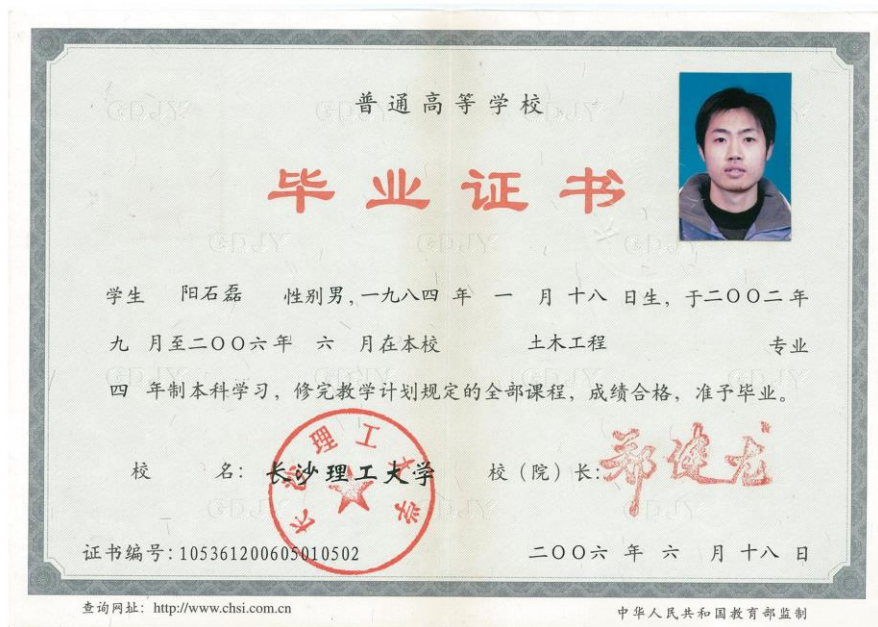 普通高等学校
毕业证书
学生 阳石磊 性别男,一九八四 年 一 月 十八 日生, 于二〇〇二 年
九 月至二〇〇六 年 六 月在本校 土木工程 专业
四 年制本科学习, 修完教学计划规定的全部课程, 成绩合格, 准予毕业。
校 名: 长沙理工大学 校(院)长: 郑健龙
长沙理工大学
证书编号: 105361200605010502 二〇〇六 年 六 月 十八 日
查询网址: http://www.chsi.com.cn 中华人民共和国教育部监制